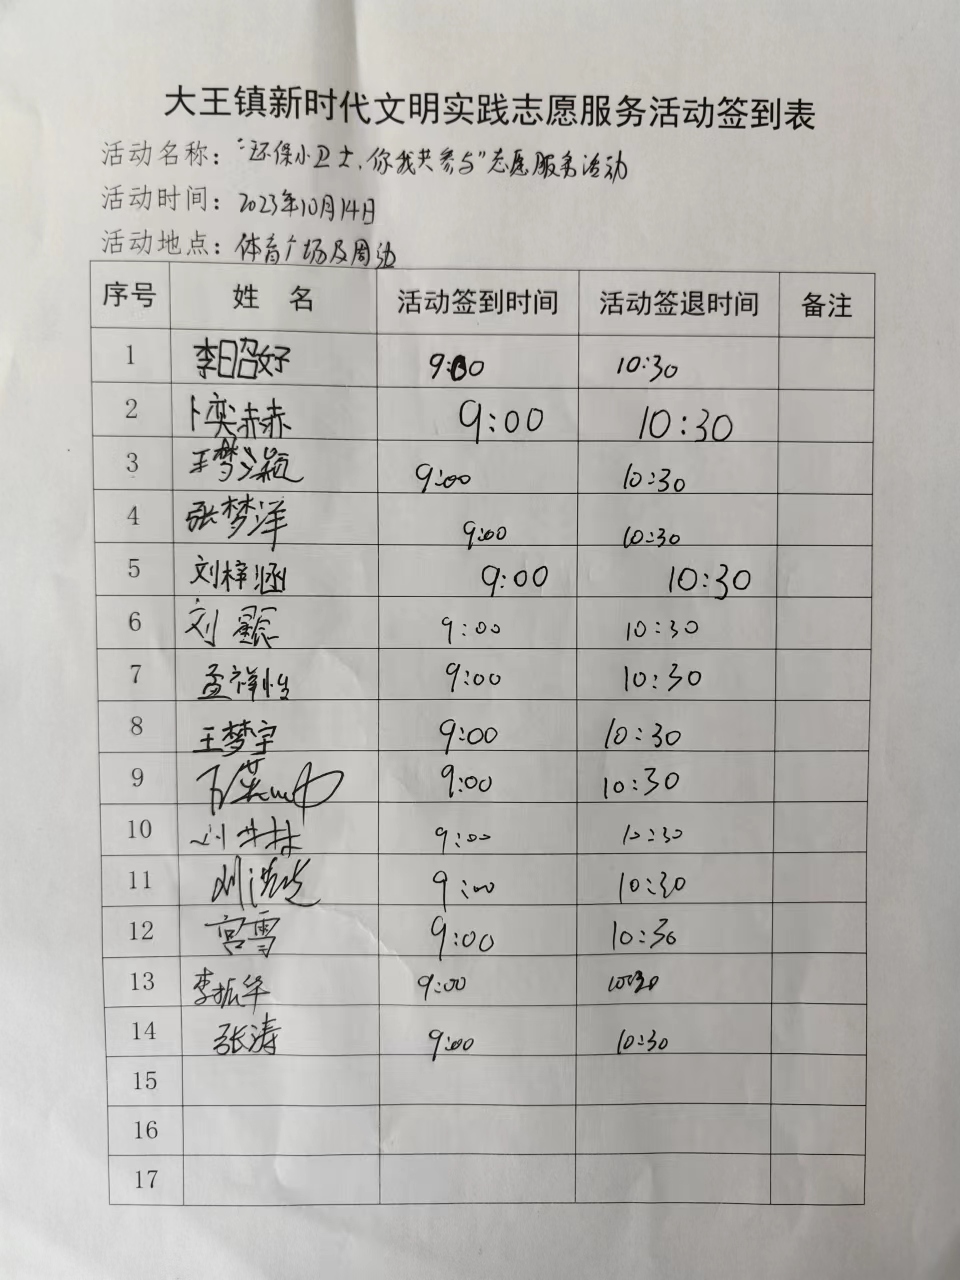 大王镇新时代文明实践志愿服务活动签到表
活动名称："环保小卫士,你我共参与"志愿服务活动
活动时间：2023年10月14日
活动地点：体育广场及周边
序号 姓 名 活动签到时间 活动签退时间 备注
1 李昭妤 9:00 10:30
2 卜奕赫 9:00 10:30
3 王梦颖 9:00 10:30
4 张梦洋 9:00 10:30
5 刘梓涵 9:00 10:30
6 刘 9:00 10:30
7 孟祥怡 9:00 10:30
8 王梦宇 9:00 10:30
9 9:00 10:30
10 9:00 10:30
11 刘 9:00 10:30
12 宫雪 9:00 10:30
13 李振华 9:00 10:30
14 张涛 9:00 10:30
15
16
17